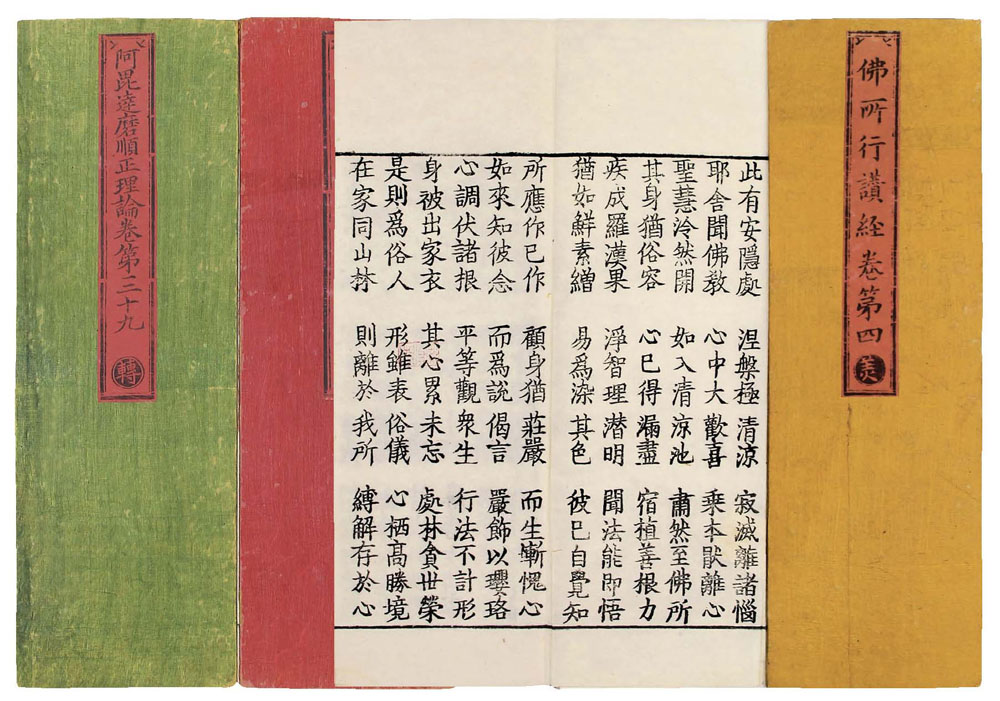 佛所行讃経卷第四
羙
此有安隱處 涅槃極清涼 寂滅離諸惱
耶舍聞佛教 心中大歡喜 乘本猒離心
聖慧泠然開 如入清涼池 肅然至佛所
其身猶俗容 心已得漏盡 宿植善根力
疾成羅漢果 淨智理潜明 聞法能即悟
猶如鮮素繒 易爲染其色 彼已自覺知
所應作已作 顧身猶莊嚴 而生慚愧心
如來知彼念 而爲說偈言 嚴飾以瓔珞
心調伏諸根 平等觀衆生 行法不計形
身被出家衣 其心累未忘 處林貪世榮
是則爲俗人 形雖表俗儀 心栖高勝境
在家同山林 則離於我所 縛解存於心
阿毘達磨順正理論卷第三十九
轉